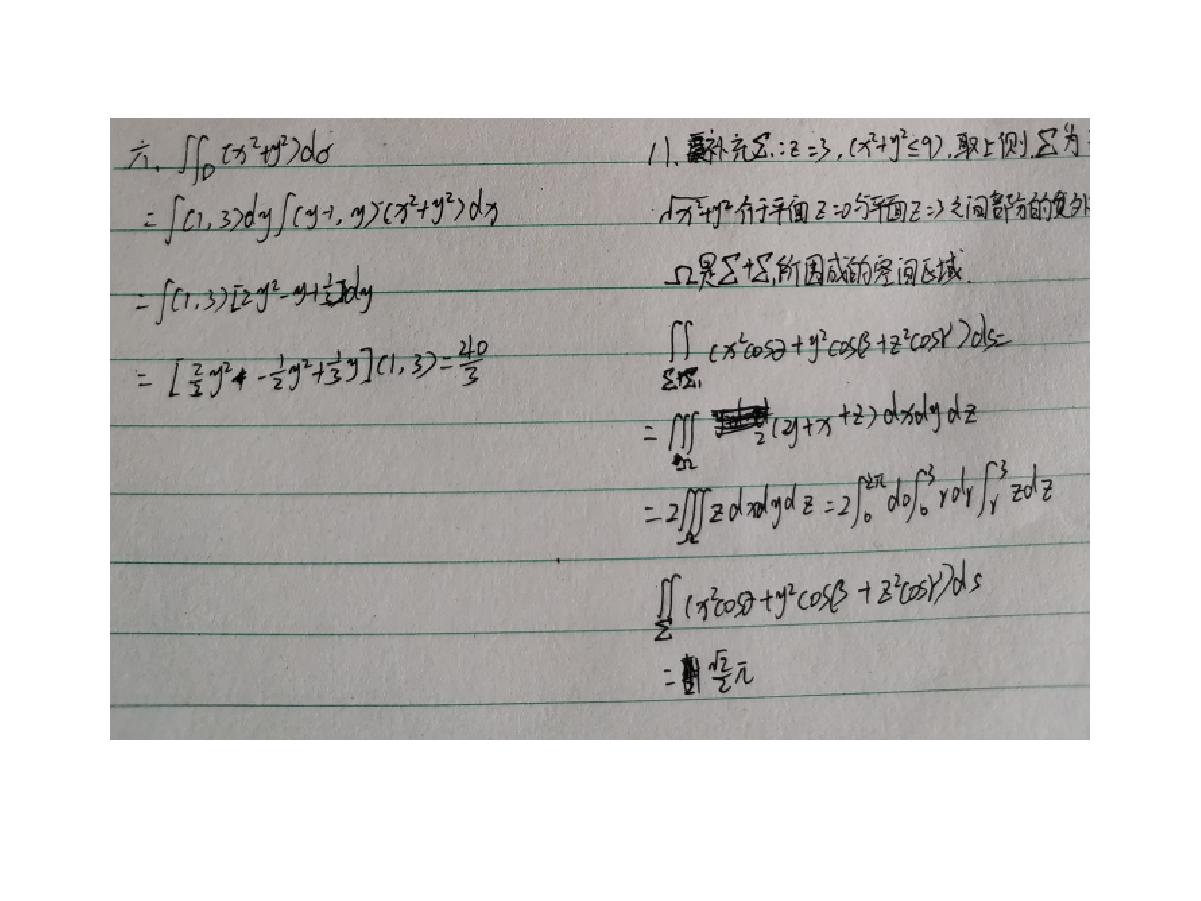 六、∬_D (x²+y²)dσ
=∫(1,3)dy∫(y-1,y)(x²+y²)dx
=∫(1,3)[2y²-y+1/3]dy
=[2/3y² -1/2y²+1/3y](1,3)=40/3
11、补充Σ₁:z=3,(x²+y²≤9),取上侧,Σ为
√x²+y²介于平面z=0与平面z=3之间部分的
Ω是Σ+Σ₁所围成的空间区域.
∬_{Σ+Σ₁} (x²cosα+y²cosβ+z²cosγ)ds=
=∭_Ω 2(y+x+z)dxdydz
=2∭_Ω zdxdydz=2∫₀^{2π}dθ∫₀³rdr∫ᵣ³zdz
∬_Σ (x²cosα+y²cosβ+z²cosγ)ds
=√2/2π